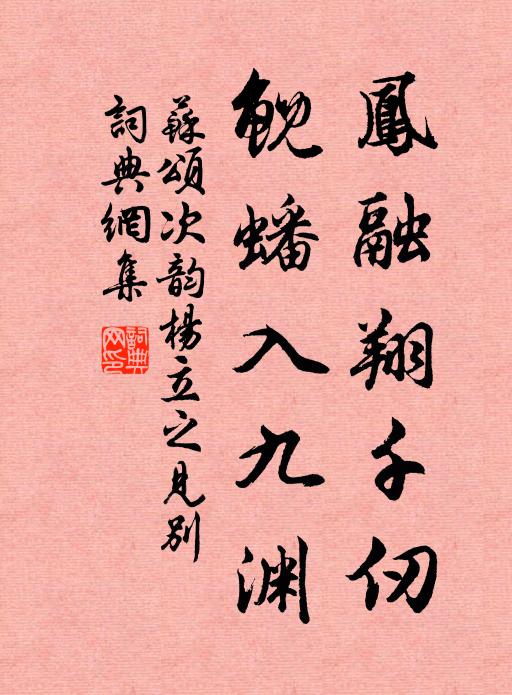 鳳融翔千仞
鲵蟠入九渊
蘇頌次韵楊立之見别
詞典網集
詞典网印